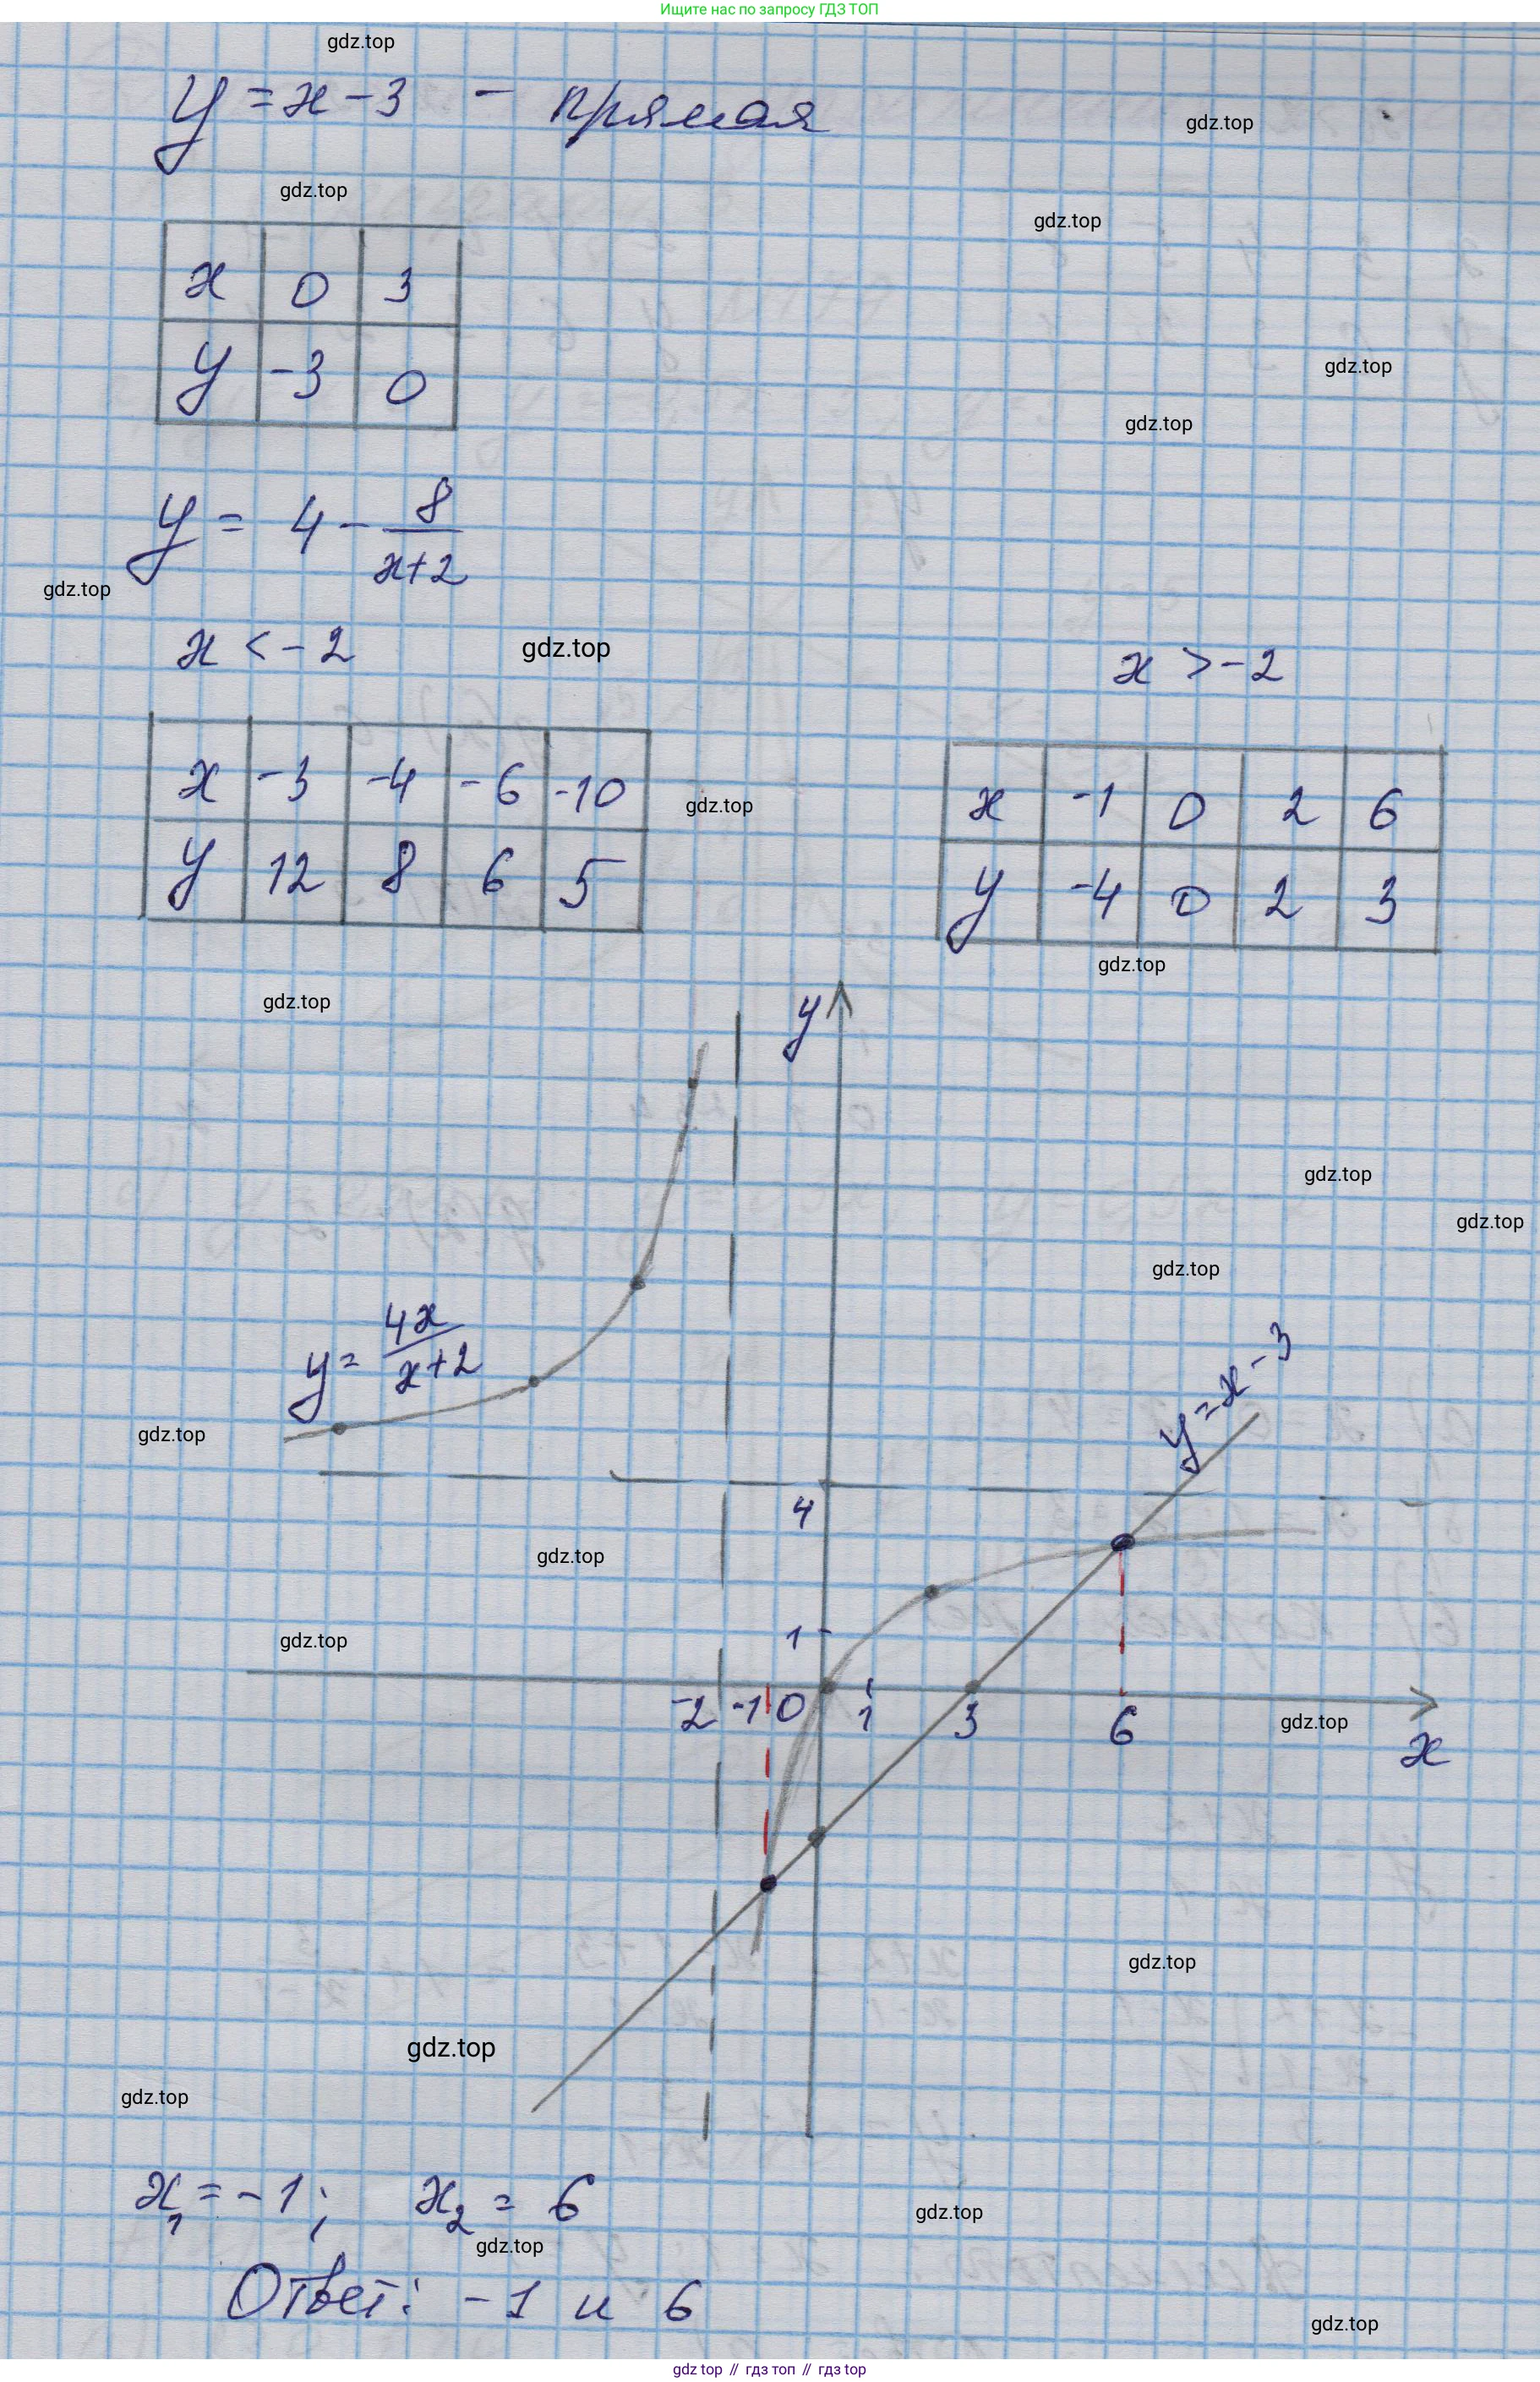 Ищите нас по запросу ГДЗ ТОП
gdz.top
y = x - 3 - прямая
gdz.top
gdz.top
gdz.top
x 0 3
y -3 0
gdz.top
gdz.top
y = 4 - 8/(x+2)
gdz.top
x < -2 gdz.top x > -2
x -3 -4 -6 -10
y 12 8 6 5
gdz.top
x -1 0 2 6
y -4 0 2 3
gdz.top
gdz.top
y
gdz.top
gdz.top
gdz.top
y = 4x/(x+2)
y = x - 3
gdz.top
4
gdz.top
1
gdz.top
-2 -1 0 1 3 6
gdz.top
x
gdz.top
gdz.top
gdz.top
x₁ = -1; x₂ = 6
gdz.top
gdz.top
Ответ: -1 и 6
gdz.top
gdz top // гдз топ // гдз top